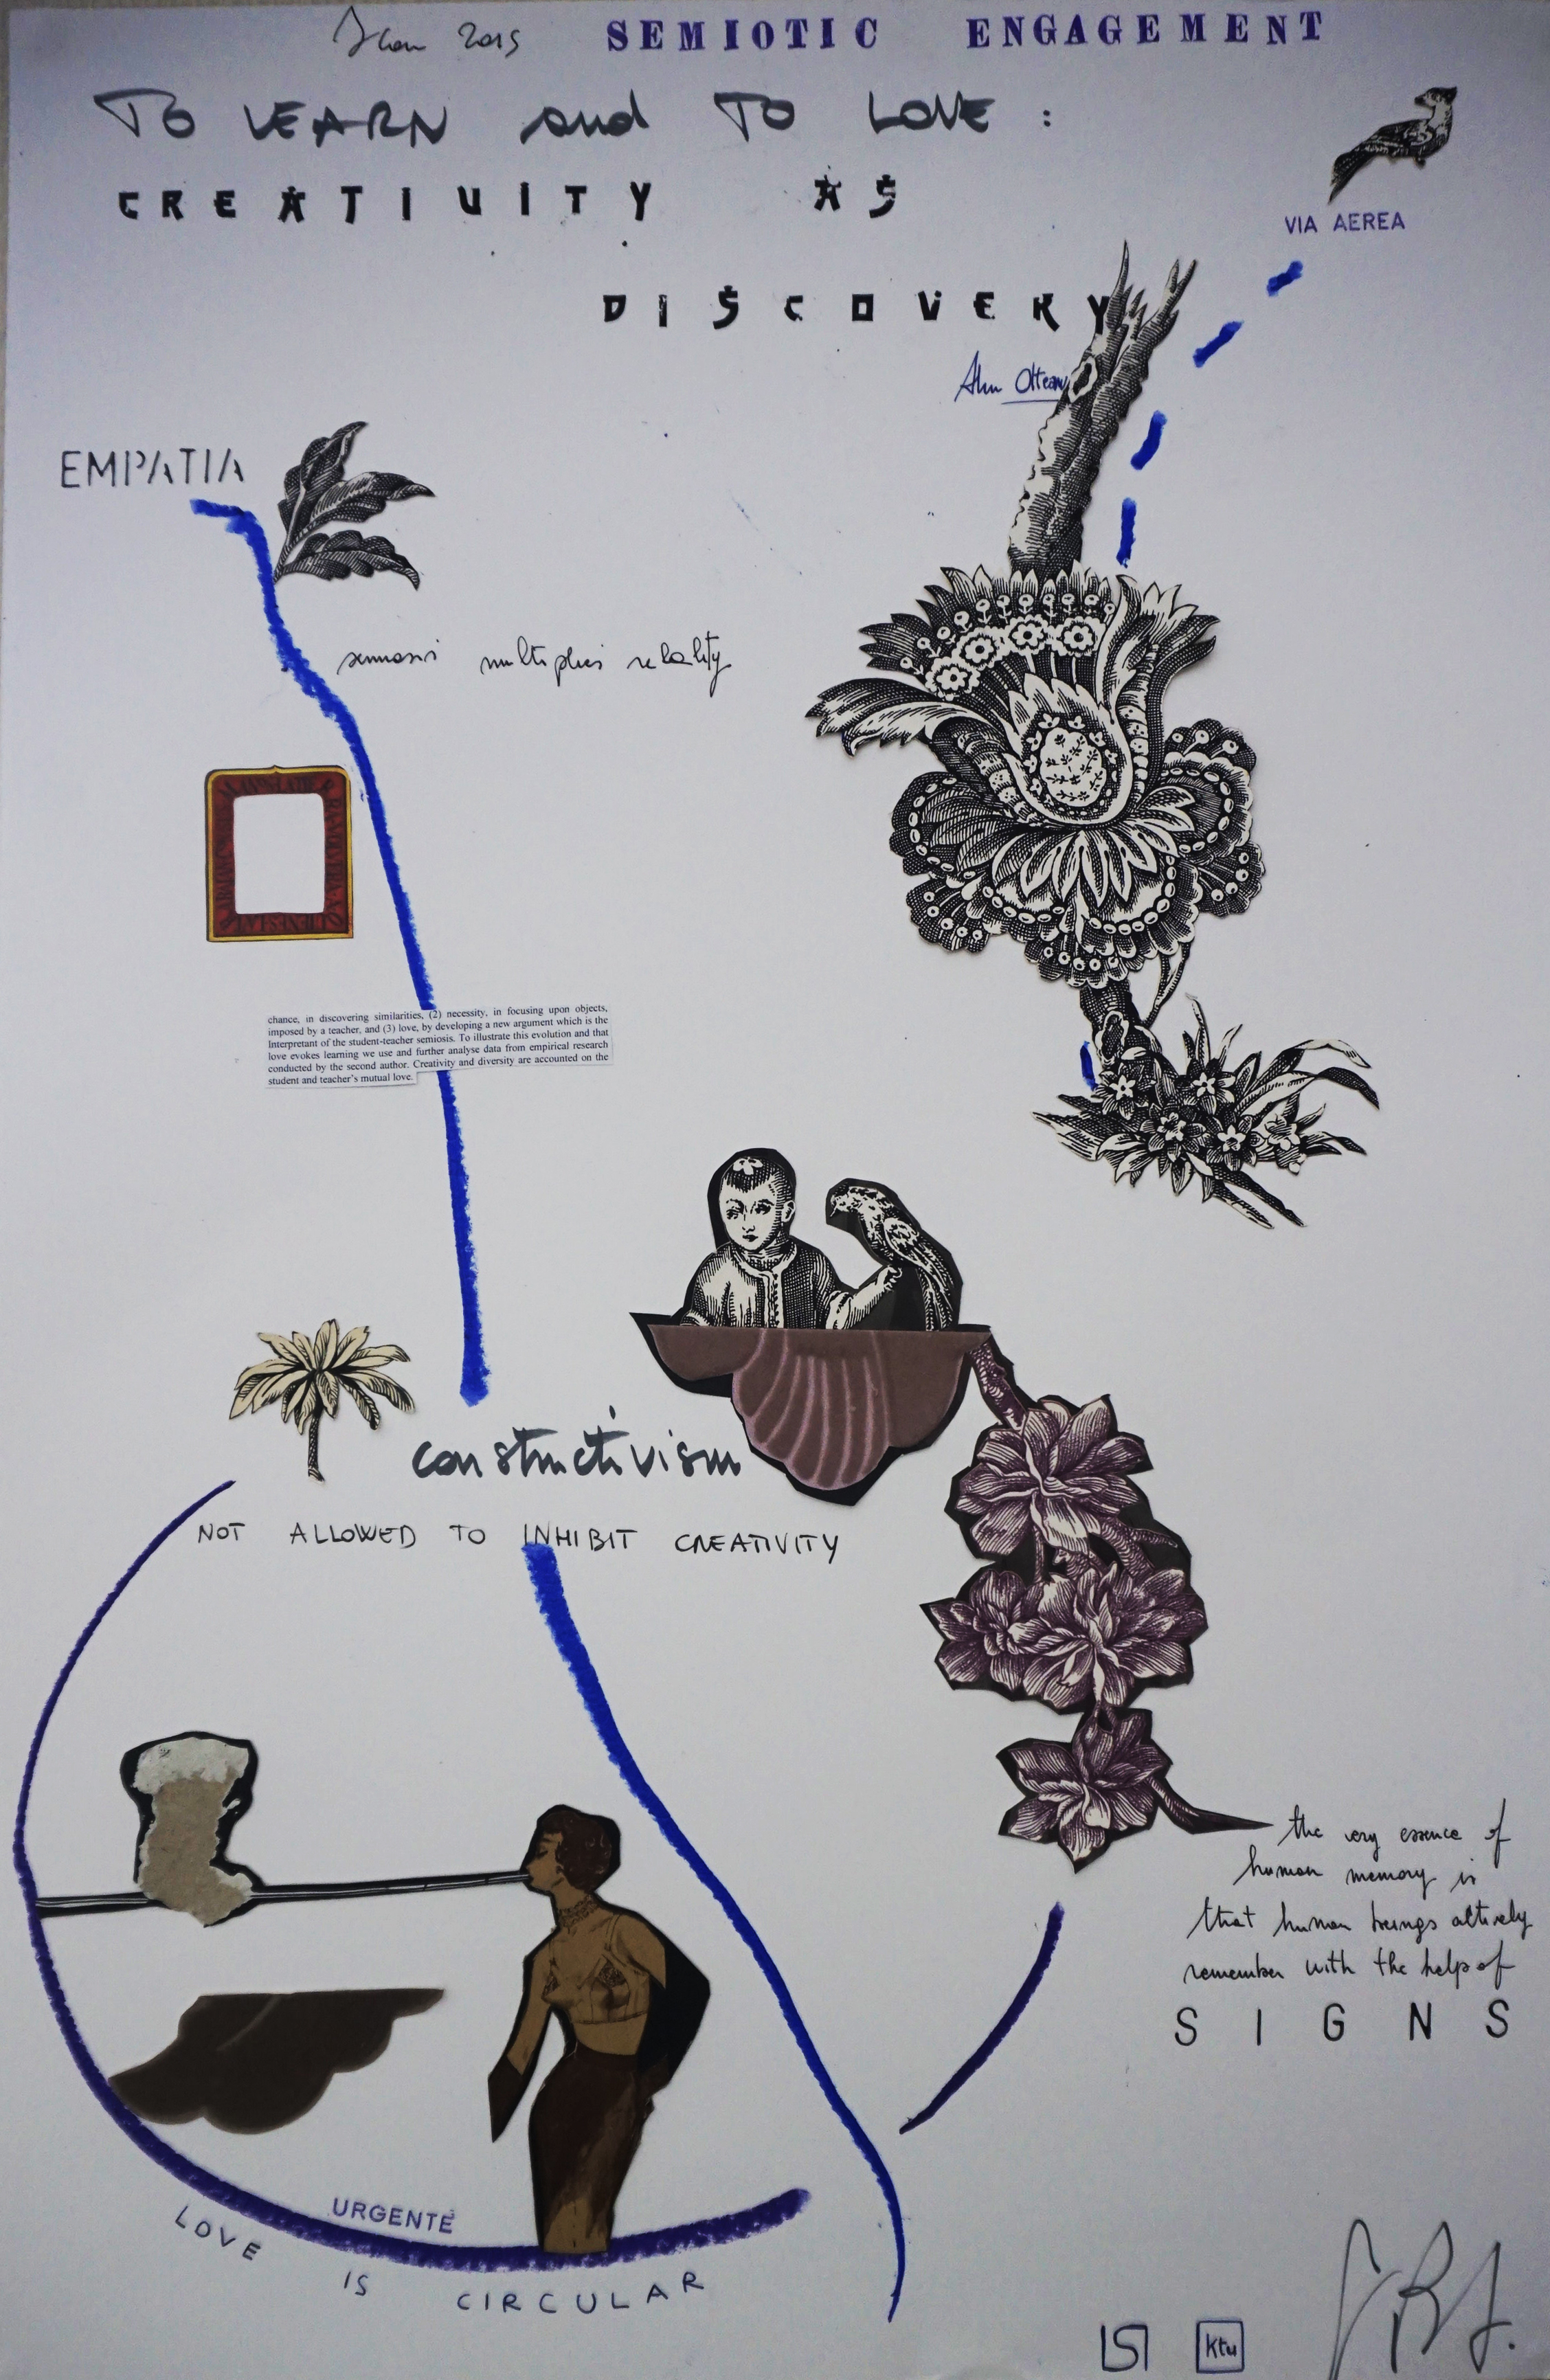 2015 SEMIOTIC ENGAGEMENT
TO LEARN and TO LOVE :
CREATIVITY AS
DISCOVERY
VIA AEREA
Alin Olteanu
EMPATIA
semiosis multiplies reality
chance, in discovering similarities, (2) necessity, in focusing upon objects,
imposed by a teacher, and (3) love, by developing a new argument which is the
Interpretant of the student-teacher semiosis. To illustrate this evolution and that
love evokes learning we use and further analyse data from empirical research
conducted by the second author. Creativity and diversity are accounted on the
student and teacher's mutual love.
constructivism
NOT ALLOWED TO INHIBIT CREATIVITY
the very essence of
human memory is
that human beings actively
remember with the help of
SIGNS
URGENTE
LOVE IS CIRCULAR
ktu